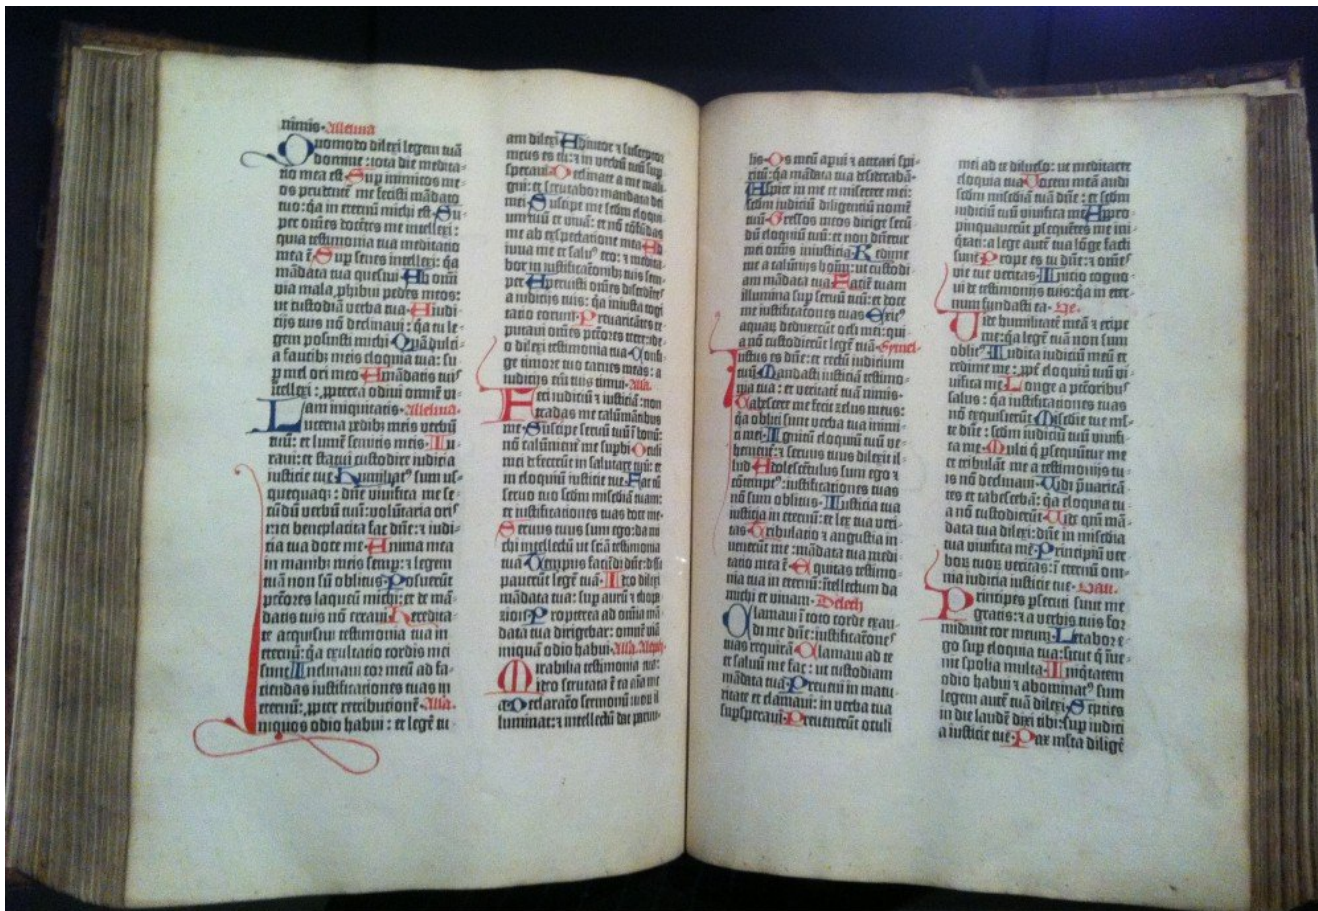 nimis. Alleluia
Quomodo dilexi legem tuā
domine: tota die medita-
tio mea est. Sup inimicos me-
os prudentē me fecisti mādato
tuo: q̄a in eternū michi est. Su-
per om̄es docētes me intellexi:
quia testimonia tua meditatio
mea ē. Sup senes intellexi: q̄a
mādata tua quesiui. Ab omī
via mala phibui pedes meos:
ut custodiā verba tua. A iudi-
cijs tuis nō declinaui: q̄a tu le-
gem posuisti michi. Quā dulci-
a faucibꝫ meis eloquia tua: su-
p mel ori meo. A mādatis tuis
ītellexi: ꝓpterea odiui omnē vi-
am iniquitatis. Alleluia.
Lucerna pedibꝫ meis verbū
tuū: et lumē semitis meis. Iu-
raui: et statui custodire iudicia
iusticie tue. Humiliatꝰ sum us-
quequaqꝫ: dn̄e viuifica me se-
cūdū verbū tuū: volūtaria oris
mei beneplacita fac dn̄e: ⁊ iudi-
cia tua doce me. Anima mea
in manibꝫ meis semp: ⁊ legem
tuā non sū oblitus. Posuerūt
pctōres laqueū michi: et de mā-
datis tuis nō erraui. Heredita-
te acquisiui testimonia tua in
eternū: q̄a exultacio cordis mei
sunt. Inclinaui cor meū ad fa-
ciendas iustificationes tuas in
eternū: ꝓpter retributionē. Alla.
Iniquos odio habui: et legē tu-
am dilexi. Adiutor ⁊ susceptor
meus es tu: ⁊ in verbū tuū sup
speraui. Declinate a me mali-
gni: et scrutabor mandata dei
mei. Suscipe me scdm eloqui-
um tuū et viuā: et nō cōfūdas
me ab expectatione mea. Ad-
iuua me et saluꝰ ero: ⁊ medita-
bor in iustificationibꝫ tuis sem-
per. Spreuisti om̄es discedētes
a iudicijs tuis: q̄a iniusta cogi
tatio eorum. Preuaricātes re-
putaui om̄es pctōres terre: ide-
o dilexi testimonia tua. Confi-
ge timore tuo carnes meas: a
iudicijs em̄ tuis timui. Alla.
Feci iudiciū ⁊ iusticiā: non
tradas me calūniātibus
me. Suscipe seruū tuū ī bonū:
nō calūnient̄ me supbi. Oculi
mei defecerūt in salutare tuū: et
in eloquiū iusticie tue. Fac cū
seruo tuo scdm mīsericordiā tuam:
et iustificationes tuas doce me.
Seruus tuus sum ego: da mi-
chi intellectū ut sciā testimonia
tua. Tempus faciēdi dn̄e: dissi-
pauerūt legē tuā. Ideo dilexi
mādata tua: sup aurū ⁊ thopa
zion. Propterea ad omīa mā-
data tua dirigebar: omnē viā
iniquā odio habui. Alla. Alleph.
Mirabilia testimonia tua:
ideo scrutata ē ea aīa mea.
Declaratō sermonū tuorū il-
luminat: ⁊ intellectū dat paruu-
lis. Os meū apui ⁊ attraxi spi-
ritū: q̄a mādata tua desiderabā.
Aspice in me et miserere mei:
scdm iudiciū diligentiū nomē
tuū. Gressos meos dirige scdū
dū eloquiū tuū: et non dn̄etur
mei om̄is iniusticia. Redime
me a calūnijs hoīm: ut custodi-
am mādata tua. Faciē tuam
illumina sup seruū tuū: et doce
me iustificatiōes tuas. Exitꝰ
aquaꝝ deduxerūt oc̄li mei: qui-
a nō custodierūt legē tuā. Symel.
Iustus es dn̄e: et rectū iudicium
tuū. Mandasti iusticiā testimo-
nia tua: et veritatē tuā nimis.
Tabescere me fecit zelus meus:
q̄a obliti sunt verba tua inimi-
ci mei. Ignitū eloquiū tuū ve-
hemēter: ⁊ seruus tuus dilexit il-
lud. Adolescētulus sum ego ⁊
cōtemptꝰ: iustificationes tuas
nō sum oblitus. Iusticia tua
iusticia in eternū: et lex tua veri-
tas. Tribulacio ⁊ angustia in-
uenerūt me: mādata tua medi-
tatio mea ē. Equitas testimo-
nia tua in eternū: ītellectum da
michi et viuam. Deleth
Clamaui ī toto corde exau-
di me dn̄e: iustificationeꝰ
tuas requirā. Clamaui ad te
et saluū me fac: ut custodiam
mādata tua. Preueni in matu-
ritate et clamaui: in verba tua
supsperaui. Preuenerūt oculi
mei ad te diluculo: ut meditarer
eloquia tua. Vocem meā audi
scdm mīsericordiā tuā dn̄e: et scdm
iudiciū tuū viuifica me. Appro-
pinquauerūt psequētes me ini-
quitati: a lege autē tua lōge facti
sunt. Prope es tu dn̄e: ⁊ om̄es
vie tue veritas. Initio cogno-
ui de testimonijs tuis: q̄a in eter-
num fundasti ea. He.
Vide humilitatē meā ⁊ eripe
me: q̄a legē tuā non sum
oblitꝰ. Iudica iudiciū meū et
redime me: ꝓpt̄ eloquiū tuū vi-
uifica me. Longe a pctōribꝰ
salus: q̄a iustificationes tuas
nō exquisierūt. Misericordie tue ml̄-
te dn̄e: scdm iudiciū tuū viuifi-
ca me. Multi q̄ psequūtur me
et tribulāt me: a testimonijs tu-
is nō declinaui. Vidi p̄uaricā-
tes et tabescebā: q̄a eloquia tu-
a nō custodierūt. Vide qm̄ mā-
data tua dilexi: dn̄e in mīsericordia
tua viuifica me. Principiū ver-
boꝝ tuoꝝ veritas: ī eternū om-
nia iudicia iusticie tue. Vau.
Principes psecuti sunt me
gratis: ⁊ a verbis tuis for-
midauit cor meum. Letabor e-
go sup eloquia tua: sicut q̄ inue-
nit spolia multa. Iniq̄tatem
odio habui ⁊ abominatꝰ sum
legem autē tuā dilexi. Septies
in die laudē dixi tibi: sup iudici-
a iusticie tue. Pax multa diligē